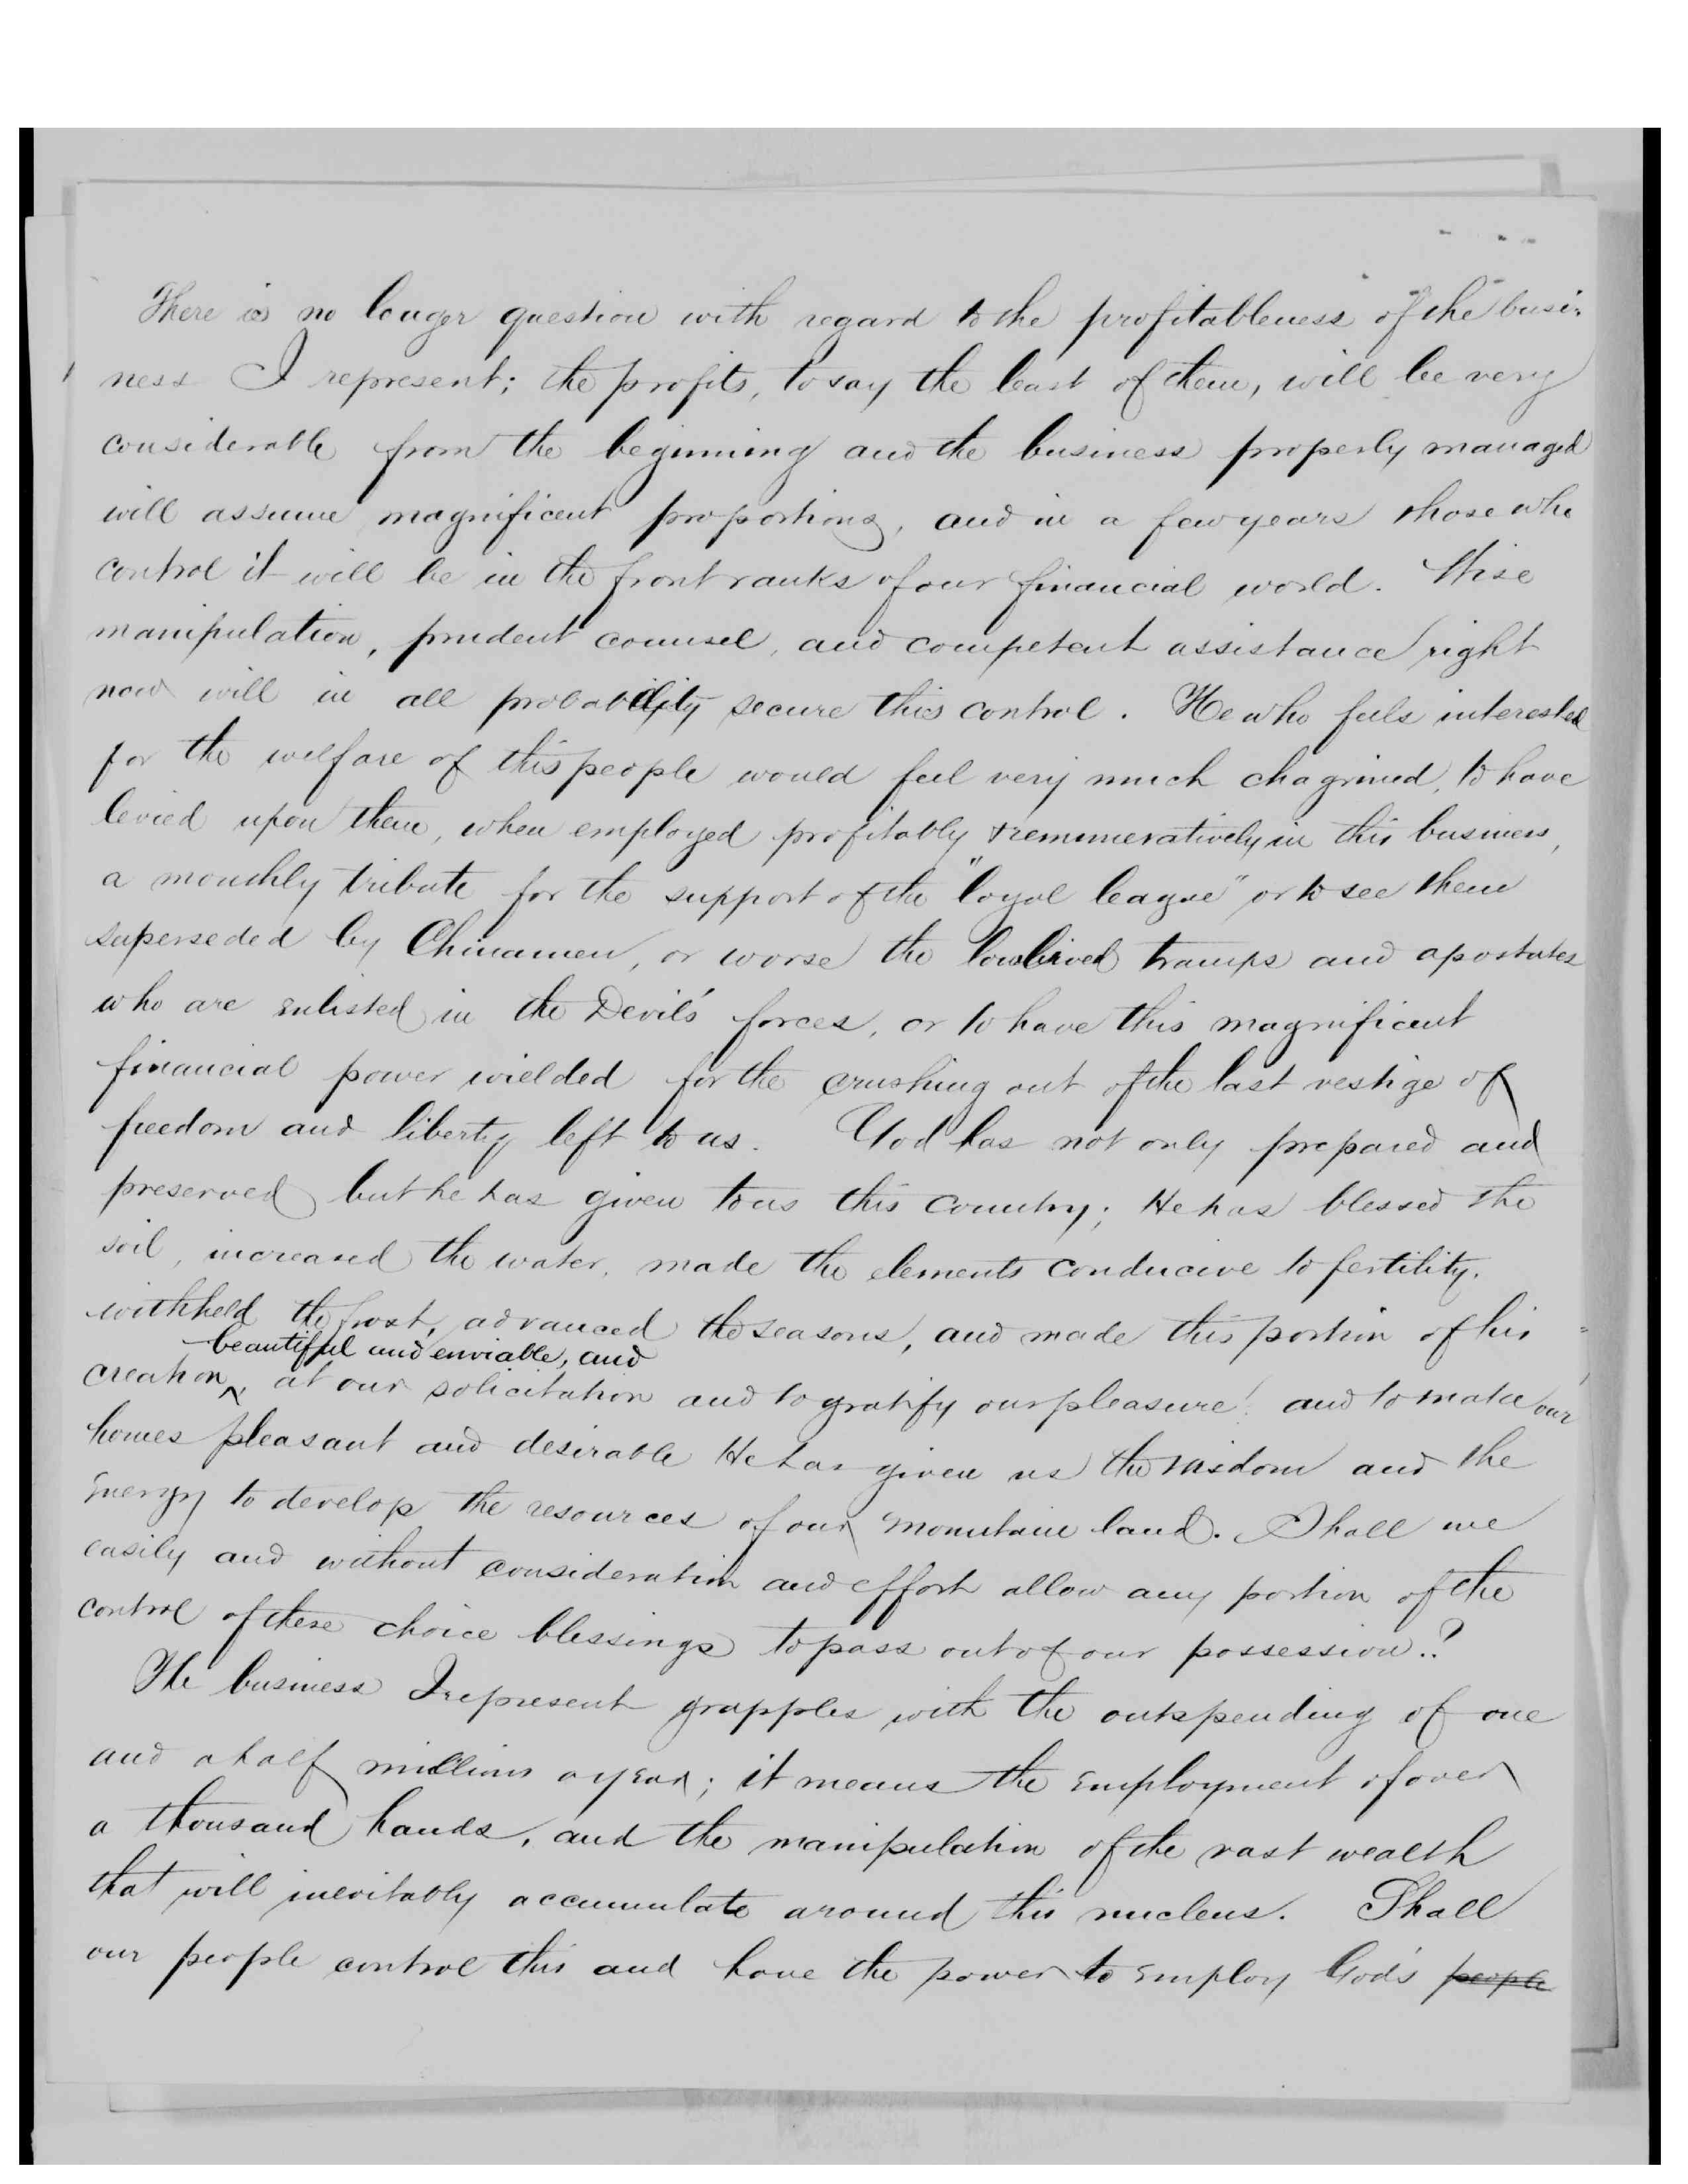 There is no longer question with regard to the profitableness of the busi-
ness I represent; the profits, to say the least of them, will be very
considerable from the beginning and the business properly managed
will assume magnificent proportions, and in a few years those who
control it will be in the front ranks of our financial world. Wise
manipulation, prudent counsel, and competent assistance right
now will in all probability secure this control. He who feels interested
for the welfare of this people would feel very much chagrined, to have
levied upon them, when employed profitably & remuneratively in this business,
a monthly tribute for the support of the "loyal league" or to see them
superseded by Chinamen, or worse the lowlived tramps and apostates
who are enlisted in the Devil's forces, or to have this magnificent
financial power wielded for the crushing out of the last vestige of
freedom and liberty left to us. God has not only prepared and
preserved but he has given to us this country; He has blessed the
soil, increased the water, made the elements conducive to fertility,
withheld the frost, advanced the seasons, and made this portion of his
beautiful and enviable, and
creation ^, at our solicitation and to gratify our pleasure! and to make our
homes pleasant and desirable He has given us the wisdom and the
energy to develop the resources of our mountain land. Shall we
easily and without consideration and effort allow any portion of the
control of these choice blessings to pass out of our possession.?
The business I represent grapples with the outspending of one
and a half millions a year; it means the employment of over
a thousand hands, and the manipulation of the vast wealth
that will inevitably accumulate around this nucleus. Shall
our people control this and have the power to employ God's people